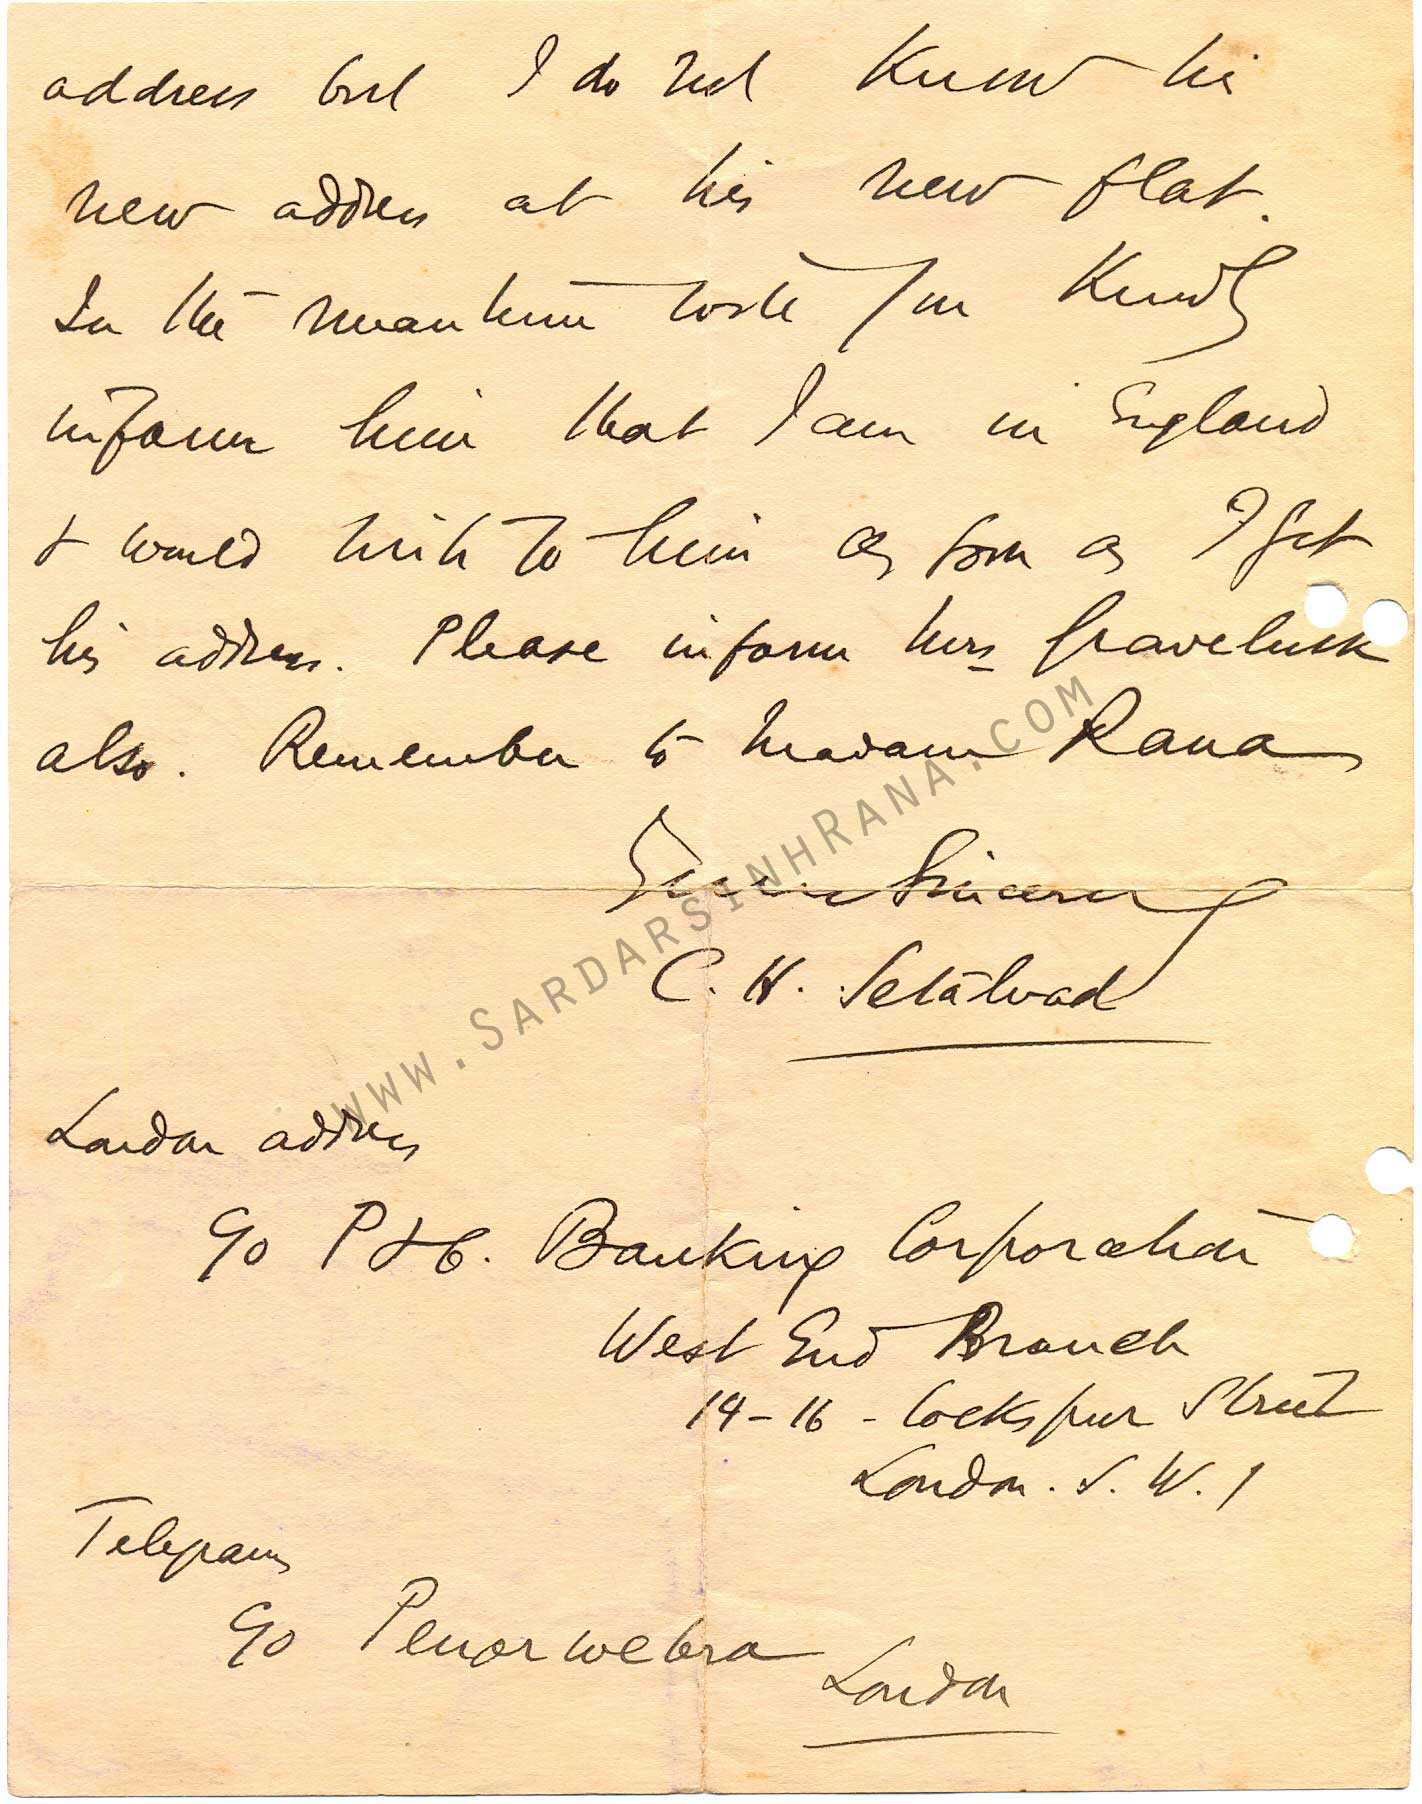 address but I do not know his
new address at his new flat.
In the meantime will you kindly
inform him that I am in England
& would write to him as soon as I get
his address. Please inform Mrs
also. Remember to Madam Rana
Yours Sincerely
C. H. Setalvad
www.SardarsinhRana.com
London address
c/o P & O. Banking Corporation
West End Branch
14-16 - Cockspur Street
London. S. W. 1
Telegrams
c/o
London